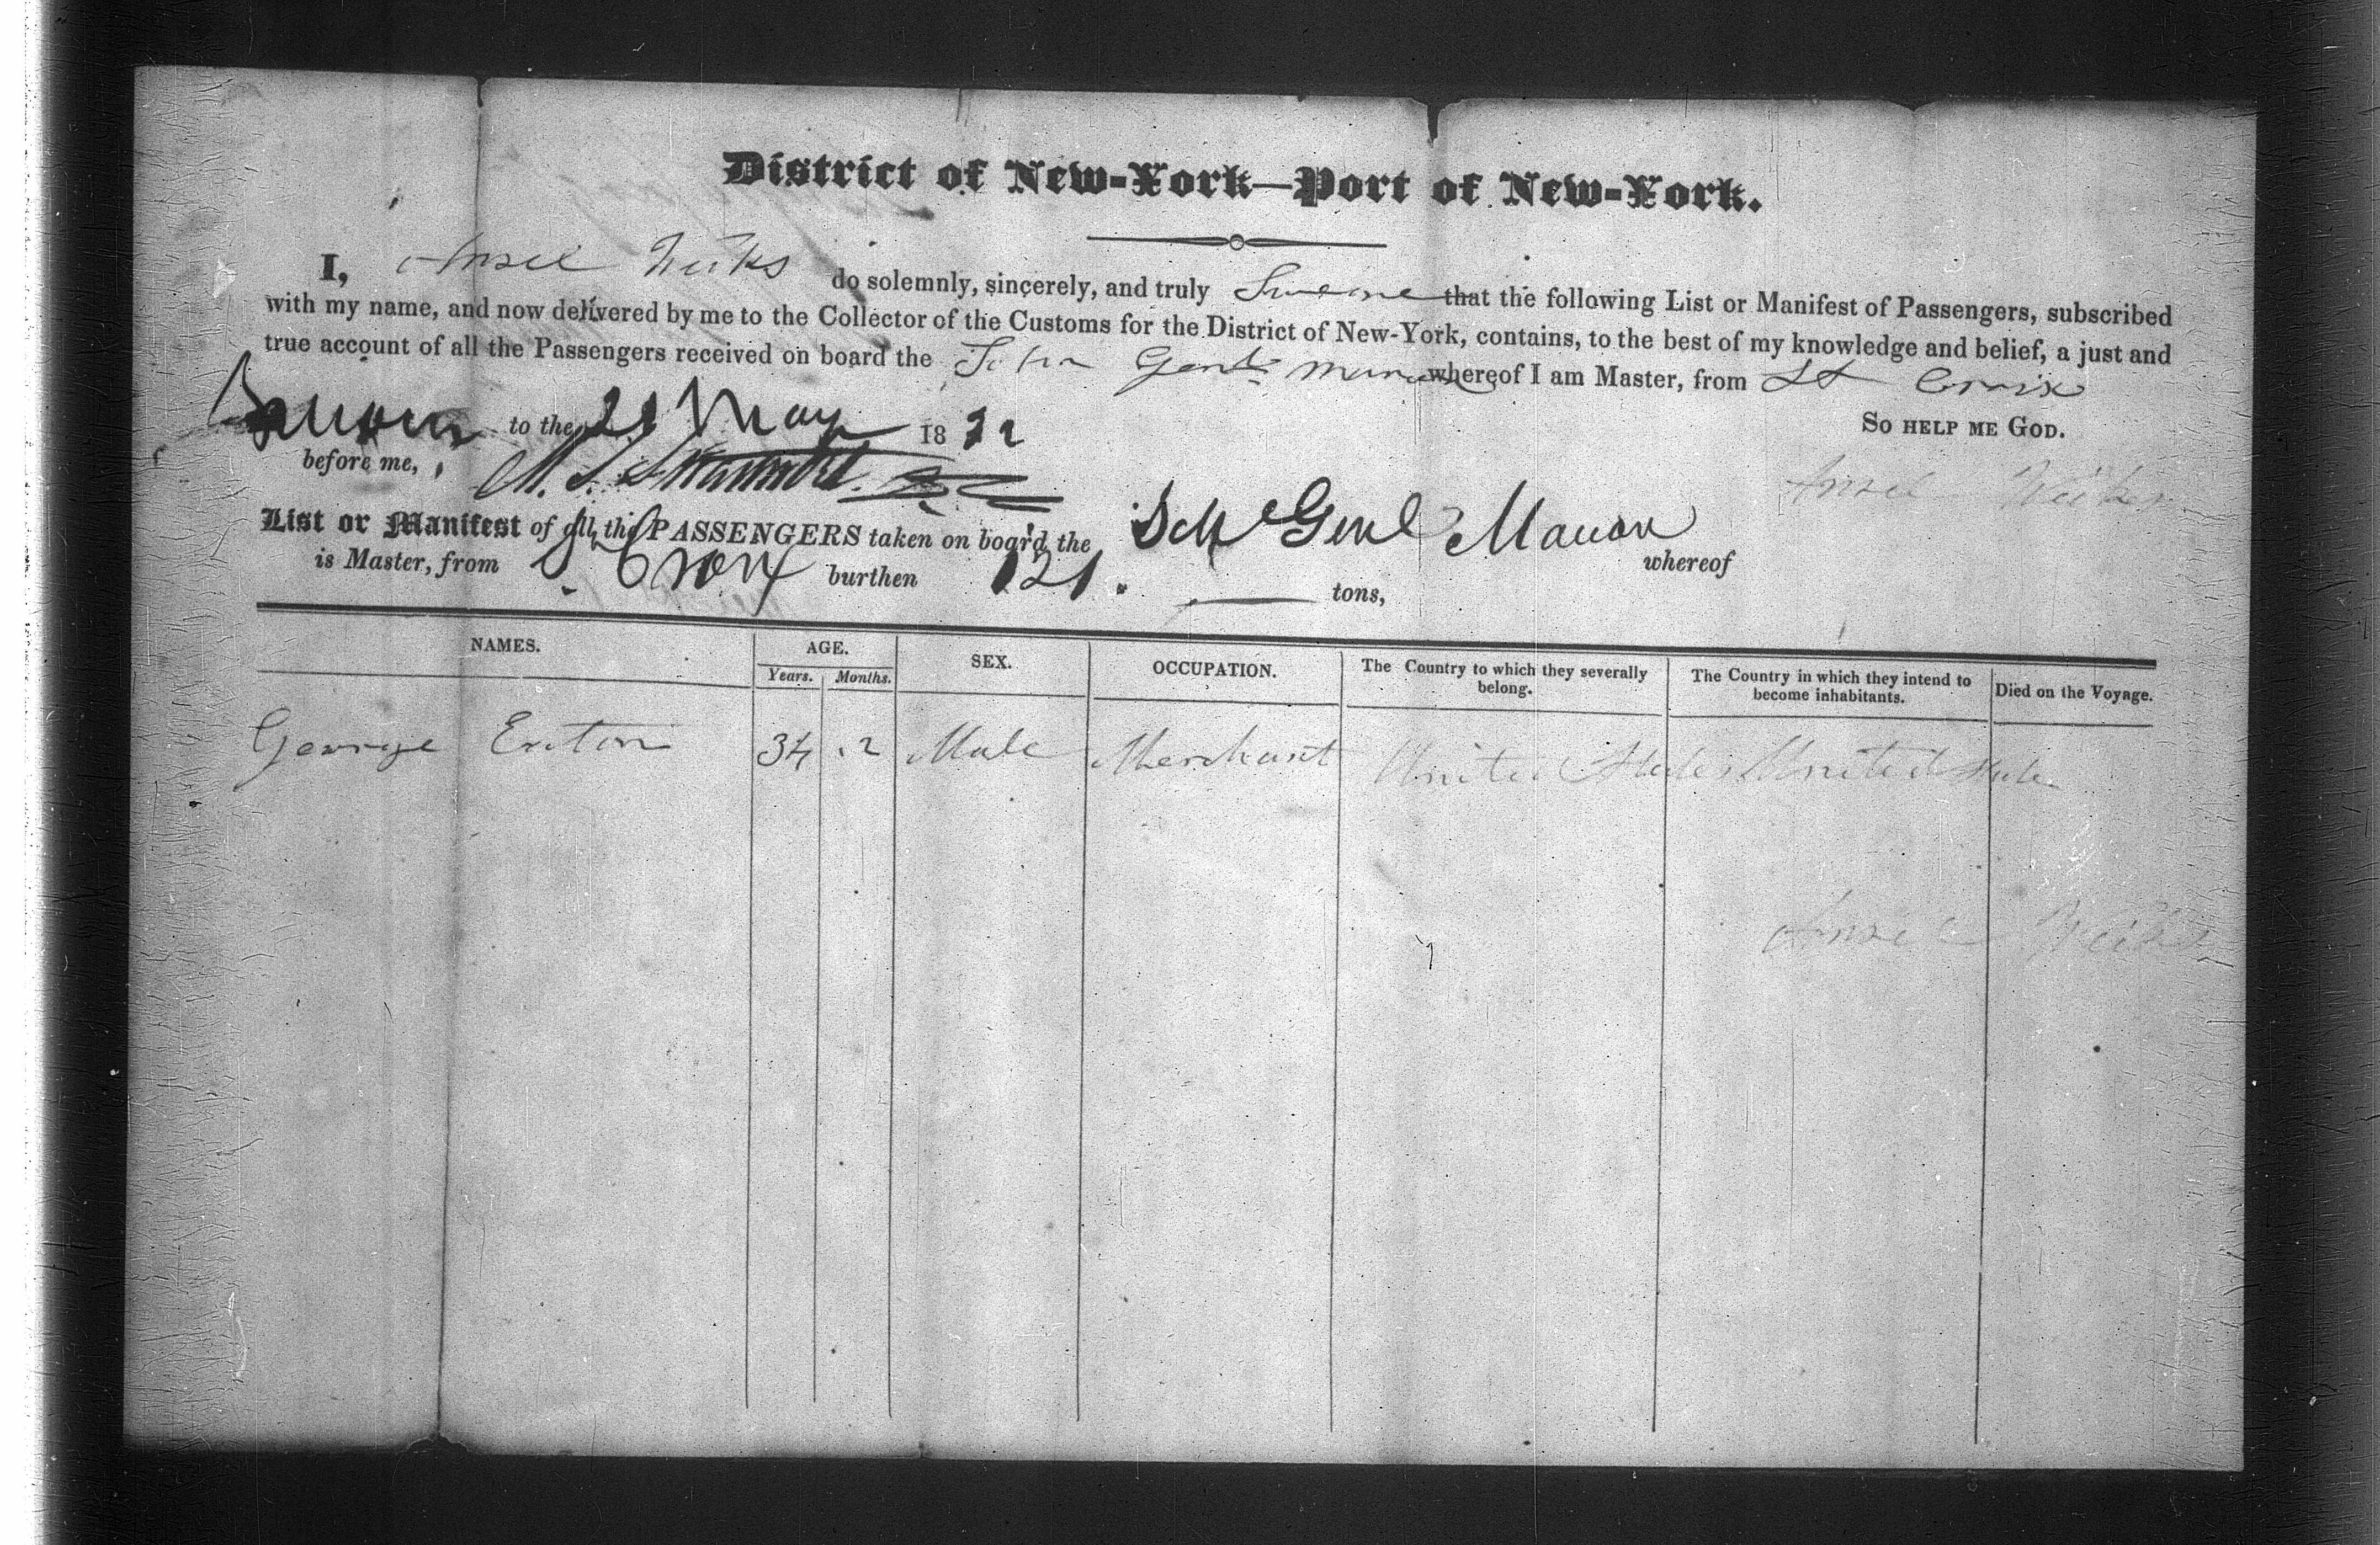 District of New-York—Port of New-York.
I, Ansel Weeks do solemnly, sincerely, and truly Swear that the following List or Manifest of Passengers, subscribed
with my name, and now delivered by me to the Collector of the Customs for the District of New-York, contains, to the best of my knowledge and belief, a just and
true account of all the Passengers received on board the Genl Marion whereof I am Master, from St Croix
Sworn to the 21 May 1832
So help me God.
before me,
Ansel Weeks
List or Manifest of all the PASSENGERS taken on board the Sch Genl Marion whereof
is Master, from St Croix burthen 121 tons,
NAMES. AGE. SEX. OCCUPATION. The Country to which they severally belong. The Country in which they intend to become inhabitants. Died on the Voyage.
Years. Months.
George 34 2 Male Merchant United States United State
Ansel Weeks